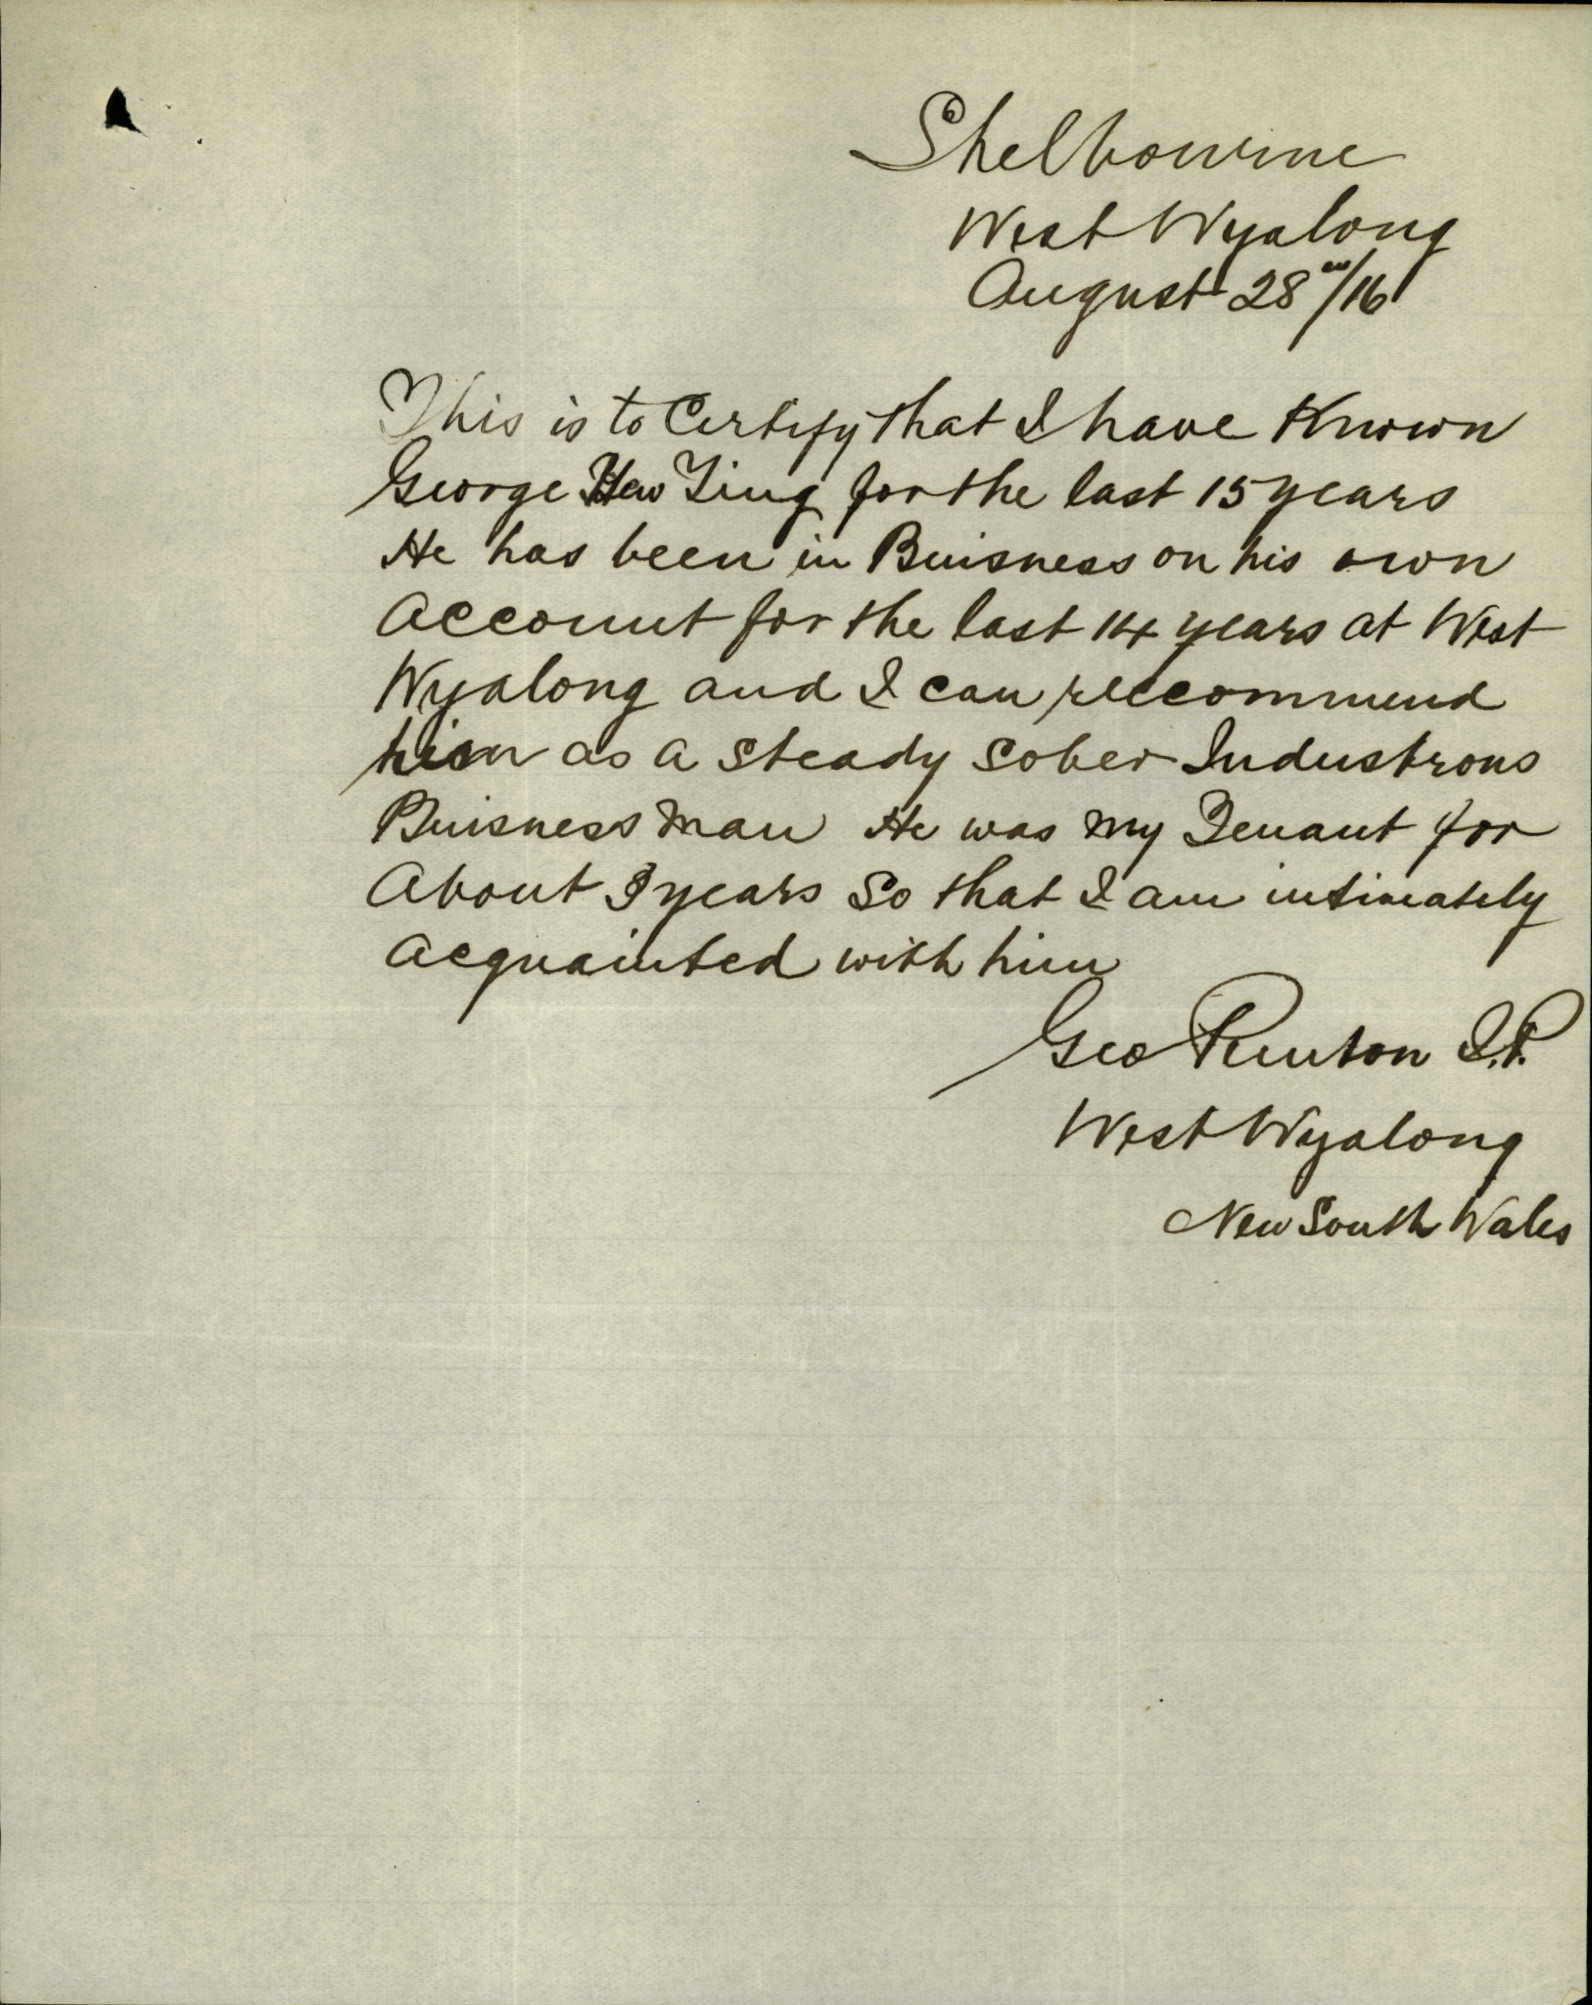 Shelbourne
West Wyalong
August 28th/16
This is to Certify that I have Known
George Hew Ting for the last 15 years
He has been in Buisness on his own
Account for the last 14 years at West
Wyalong and I can reccommend
him as a Steady Sober Industrous
Buisness man He was my Tenant for
About 3 years So that I am intimately
Acquainted with him
Geo Renton J.P.
West Wyalong
New South Wales